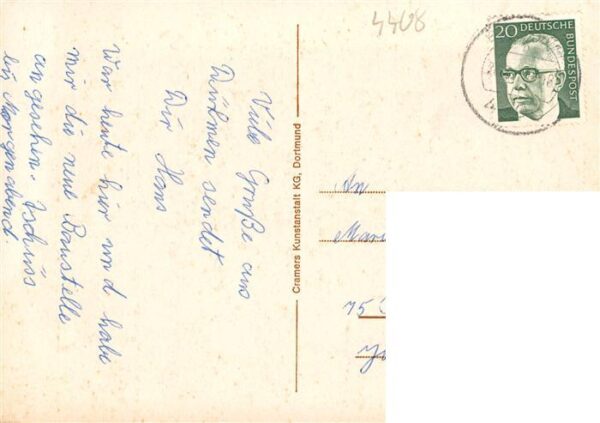 4408
20 DEUTSCHE
BUNDESPOST
Viele Grüße aus
Dülmen sendet
Dir Hans
War heute hier und habe
mir die neue Baustelle
angesehen. Tschüss
bis Morgenabend.
Cramers Kunstanstalt KG, Dortmund
An
75